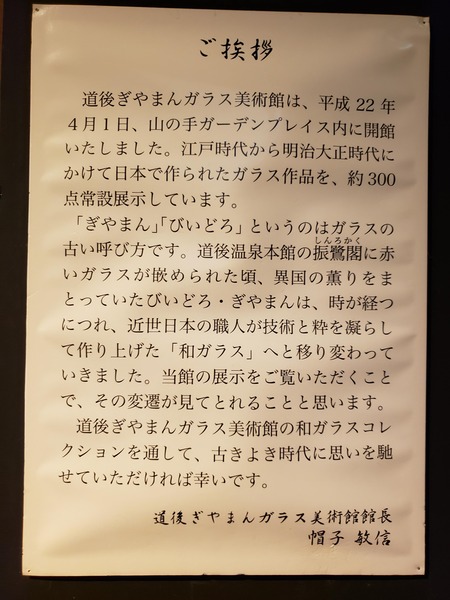 ご挨拶
道後ぎやまんガラス美術館は、平成 22 年
4月1日、山の手ガーデンプレイス内に開館
いたしました。江戸時代から明治大正時代に
かけて日本で作られたガラス作品を、約 300
点常設展示しています。
「ぎやまん」「びいどろ」というのはガラスの
古い呼び方です。道後温泉本館の振鷺閣に赤
しんろかく
いガラスが嵌められた頃、異国の薫りをま
とっていたびいどろ・ぎやまんは、時が経つ
につれ、近世日本の職人が技術と粋を凝らし
て作り上げた「和ガラス」へと移り変わって
いきました。当館の展示をご覧いただくこと
で、その変遷が見てとれることと思います。
道後ぎやまんガラス美術館の和ガラスコレ
クションを通して、古きよき時代に思いを馳
せていただければ幸いです。
道後ぎやまんガラス美術館館長
帽子 敏信